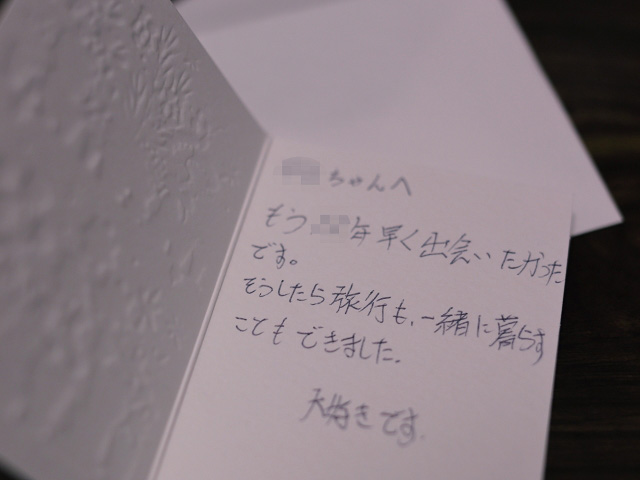 ちゃんへ
もう 年早く出会いたかった
です。
そうしたら旅行も、一緒に暮らす
こともできました。
大好きです。